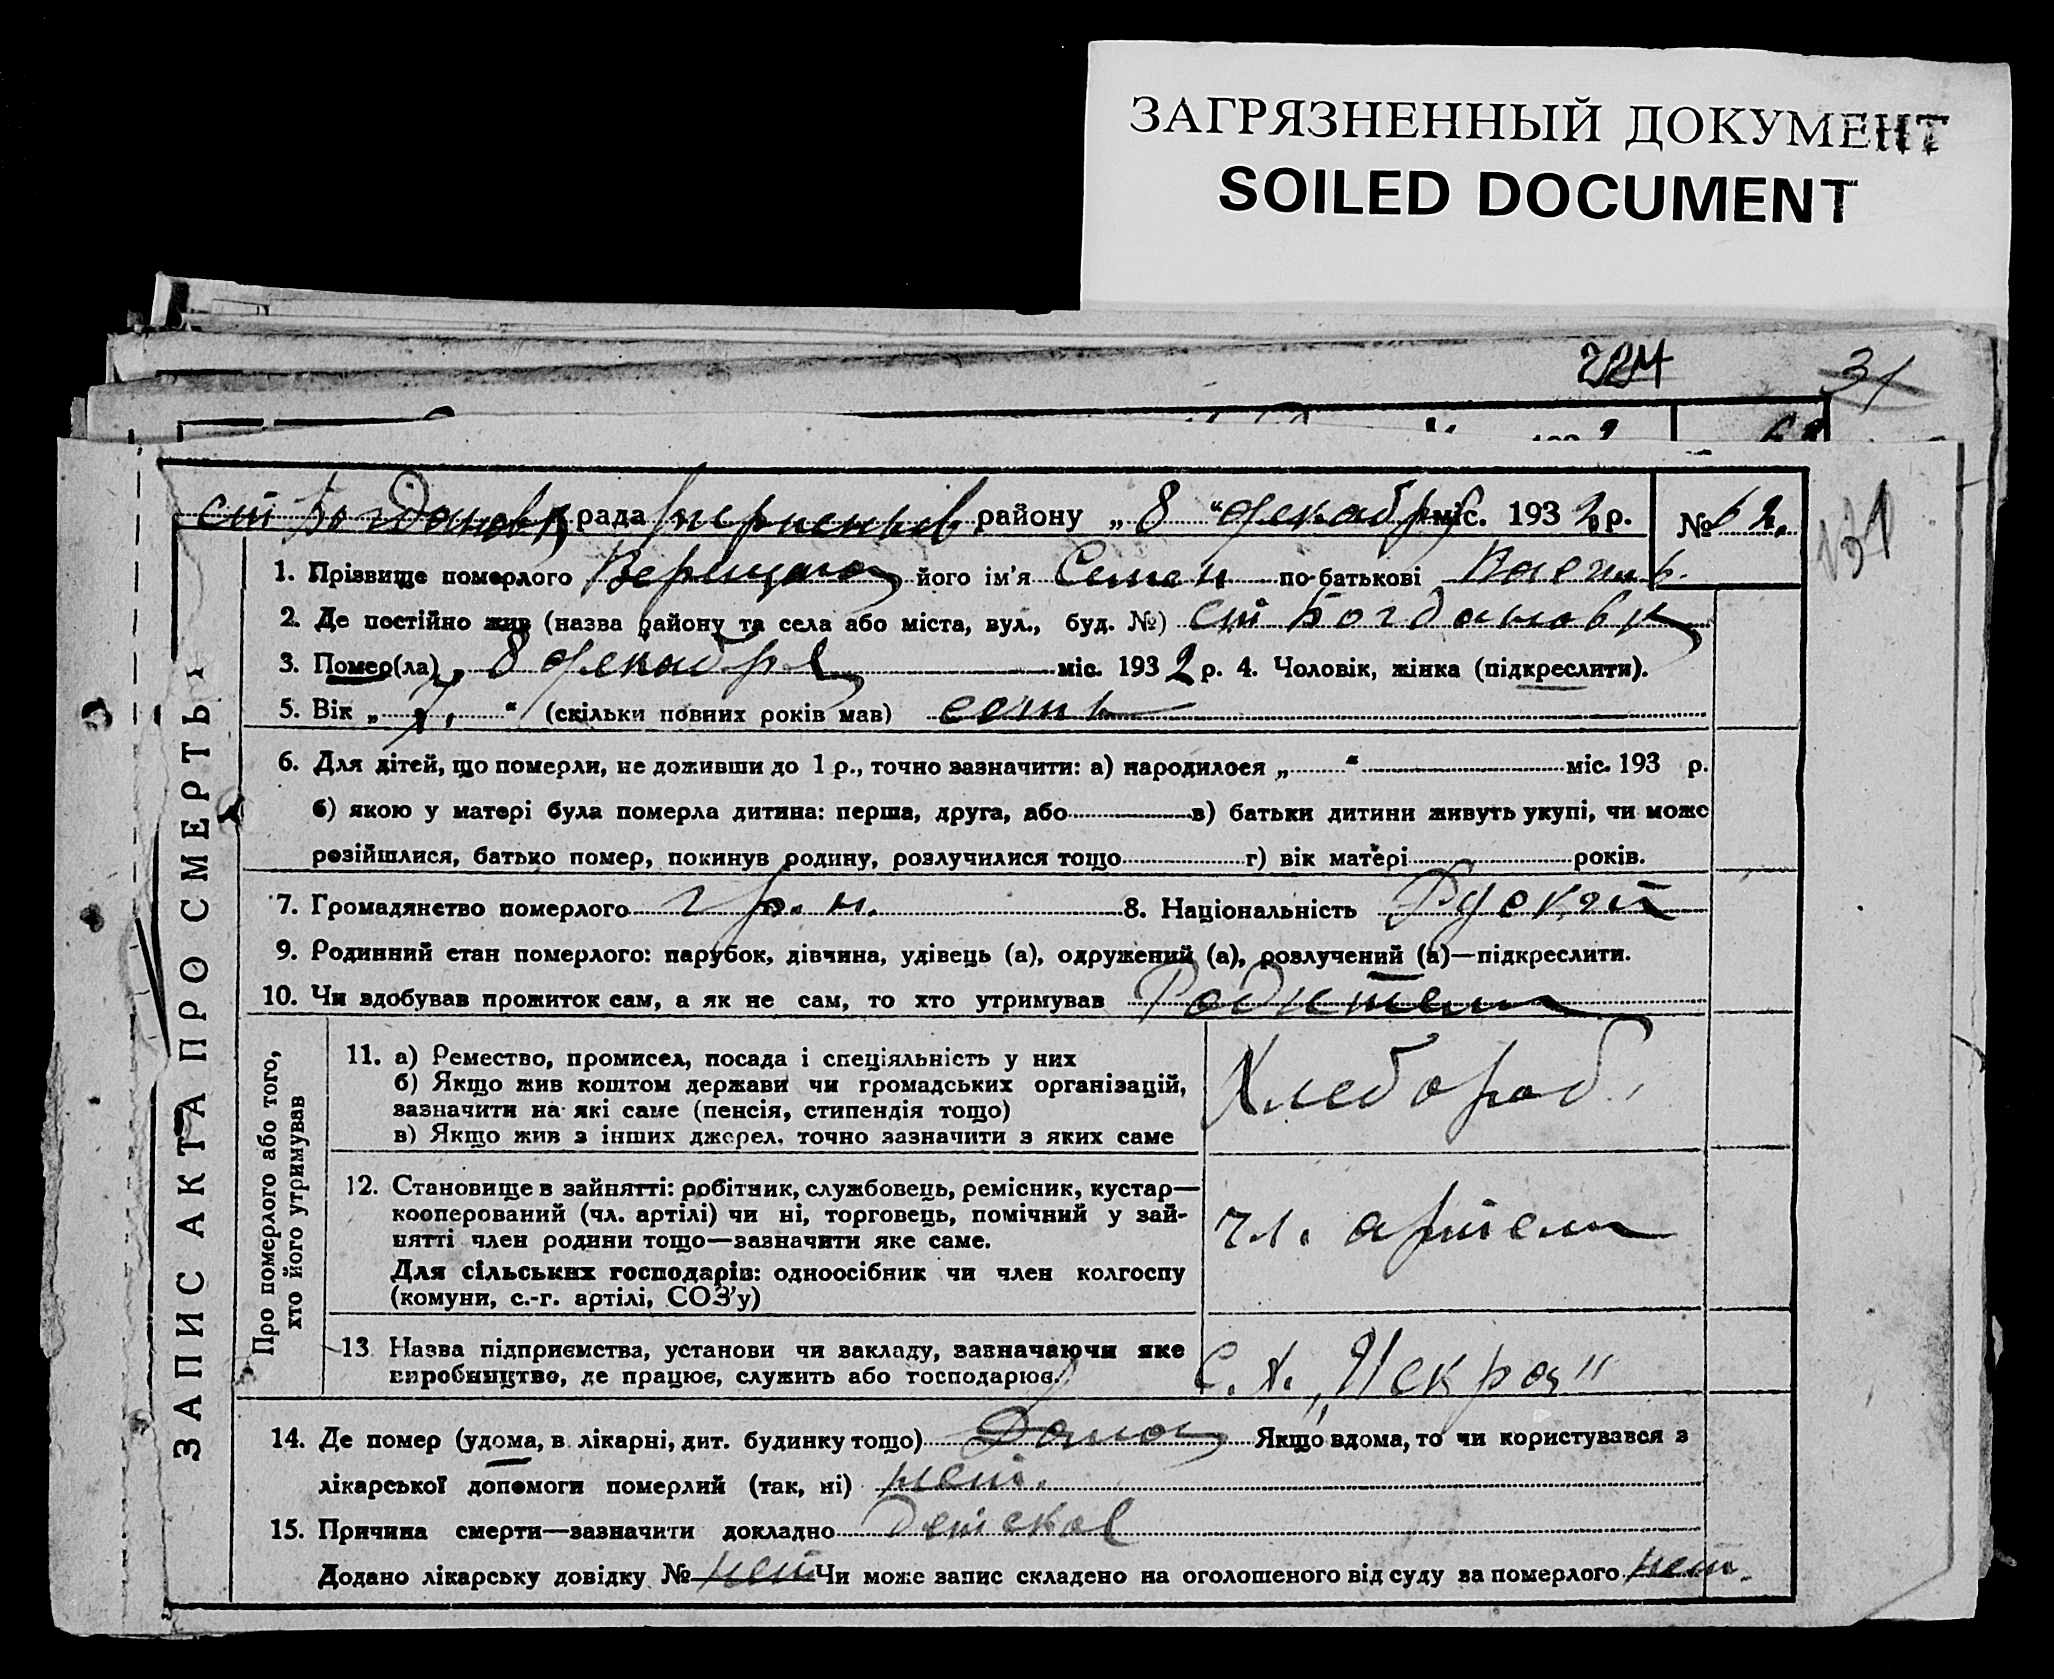 ЗАГРЯЗНЕННЫЙ ДОКУМЕНТ
SOILED DOCUMENT
31
рада району „ 8 “ декабря міс. 193 2 р. № 62.
131
1. Прізвище померлого його ім’я Семен по-батькові
2. Де постійно жив (назва району та села або міста, вул., буд. №) ст Богдановка
3. Помер(ла) „ 8 декабря міс. 193 2 р. 4. Чоловік, жінка (підкреслити).
5. Вік „ 7, “ (скільки повних років мав) семь
6. Для дітей, що померли, не доживши до 1 р., точно зазначити: а) народилося „ “ міс. 193 р.
б) якою у матері була померла дитина: перша, друга, або в) батьки дитини живуть укупі, чи може
розійшлися, батько помер, покинув родину, розлучилися тощо г) вік матері років.
7. Громадянство померлого 8. Національність Руский
9. Родинний стан померлого: парубок, дівчина, удівець (а), одружений (а), розлучений (а)—підкреслити.
10. Чи здобував прожиток сам, а як не сам, то хто утримував Родители
ЗАПИС АКТА ПРО СМЕРТЬ
Про померлого або того,
хто його утримував
11. а) Ремество, промисел, посада і спеціяльність у них
б) Якщо жив коштом держави чи громадських організацій,
зазначити на які саме (пенсія, стипендія тощо)
в) Якщо жив з інших джерел, точно зазначити з яких саме
Хлебороб.
12. Становище в зайнятті: робітник, службовець, ремісник, кустар—
кооперований (чл. артілі) чи ні, торговець, помічний у зай-
нятті член родини тощо—зазначити яке саме.
Для сільських господарів: одноосібник чи член колгоспу
(комуни, с.-г. артілі, СОЗ’у)
чл. артели
13 Назва підприємства, установи чи закладу, зазначаючи яке
виробництво, де працює, служить або господарює.
С. Х. „Искра“
14. Де помер (удома, в лікарні, дит. будинку тощо) Дома Якщо вдома, то чи користувався з
лікарської допомоги померлий (так, ні) нет.
15. Причина смерти—зазначити докладно детская
Додано лікарську довідку № нет Чи може запис складено на оголошеного від суду за померлого нет.